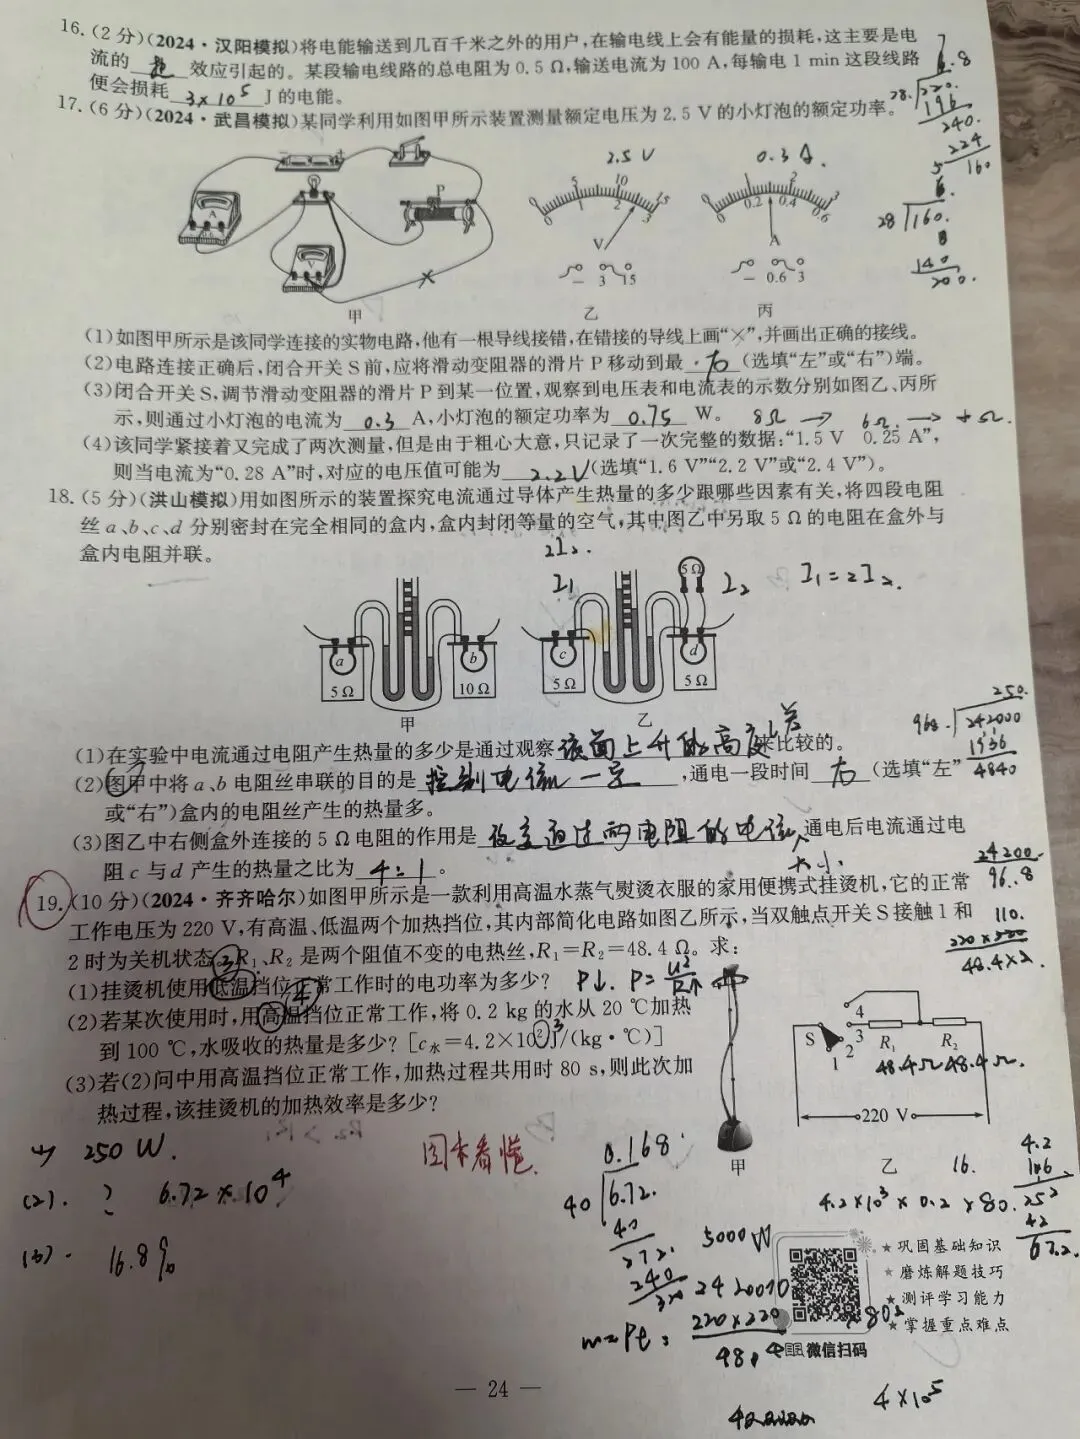 16. (2分)(2024·汉阳模拟)将电能输送到几百千米之外的用户,在输电线上会有能量的损耗,这主要是电
流的 热 效应引起的。某段输电线路的总电阻为0.5 Ω,输送电流为100 A,每输电1 min这段线路
便会损耗 3×10⁵ J的电能。
17. (6分)(2024·武昌模拟)某同学利用如图甲所示装置测量额定电压为2.5 V的小灯泡的额定功率。
28. 220.
196
240.
224
160
28 160.
140
200.
2.5 V 0.3 A.
A V P
0 5 10 15
0 1 2 3
V
− 3 15
0 1 2 3
0 0.2 0.4 0.6
A
− 0.6 3
甲 乙 丙
(1)如图甲所示是该同学连接的实物电路,他有一根导线接错,在错接的导线上画“×”,并画出正确的接线。
(2)电路连接正确后,闭合开关S前,应将滑动变阻器的滑片P移动到最 右 (选填“左”或“右”)端。
(3)闭合开关S,调节滑动变阻器的滑片P到某一位置,观察到电压表和电流表的示数分别如图乙、丙所
示,则通过小灯泡的电流为 0.3 A,小灯泡的额定功率为 0.75 W。 8Ω → 6Ω. →
(4)该同学紧接着又完成了两次测量,但是由于粗心大意,只记录了一次完整的数据:“1.5 V 0.25 A”,
则当电流为“0.28 A”时,对应的电压值可能为 2.2V (选填“1.6 V”“2.2 V”或“2.4 V”)。
18. (5分)(洪山模拟)用如图所示的装置探究电流通过导体产生热量的多少跟哪些因素有关,将四段电阻
丝a、b、c、d分别密封在完全相同的盒内,盒内封闭等量的空气,其中图乙中另取5 Ω的电阻在盒外与
盒内电阻并联。
2I₂.
I₁ 5Ω I₂ I₁=2I₂.
a b c d
5Ω 10Ω 5Ω 5Ω
甲 乙
(1)在实验中电流通过电阻产生热量的多少是通过观察 液面上升的高度差 来比较的。
(2)图甲中将a、b电阻丝串联的目的是 控制电流一定 ,通电一段时间 右 (选填“左”
或“右”)盒内的电阻丝产生的热量多。
(3)图乙中右侧盒外连接的5 Ω电阻的作用是 改变通过两电阻的电流大小. ,通电后电流通过电
阻c与d产生的热量之比为 4:1 。
250.
968. 242000
1936
4840
24200.
96.8
110.
220×220
48.4×2.
19. (10分)(2024·齐齐哈尔)如图甲所示是一款利用高温水蒸气熨烫衣服的家用便携式挂烫机,它的正常
工作电压为220 V,有高温、低温两个加热挡位,其内部简化电路如图乙所示,当双触点开关S接触1和
2时为关机状态。R₁、R₂是两个阻值不变的电热丝,R₁=R₂=48.4 Ω。求:
(1)挂烫机使用低温挡位正常工作时的电功率为多少? P↓. P=
(2)若某次使用时,用高温挡位正常工作,将0.2 kg的水从20 ℃加热
到100 ℃,水吸收的热量是多少?[c水=4.2×10³J/(kg·℃)]
(3)若(2)问中用高温挡位正常工作,加热过程共用时80 s,则此次加
热过程,该挂烫机的加热效率是多少?
S 1 2 3 4 R₁ R₂
48.4Ω 48.4Ω.
220 V
甲 乙
(1) 250 W.
(2). ? 6.72×10⁴
(3). 16.8%
图未看懂.
0.168
40 6.72.
40
272.
240
320
16.
4.2×10³×0.2×80.
4.2
16
252
42
67.2.
5000W
2420000
W=Pt=
220×220
48.4
×80
4×10⁵
★巩固基础知识
★磨炼解题技巧
★测评学习能力
★掌握重点难点
微信扫码
— 24 —